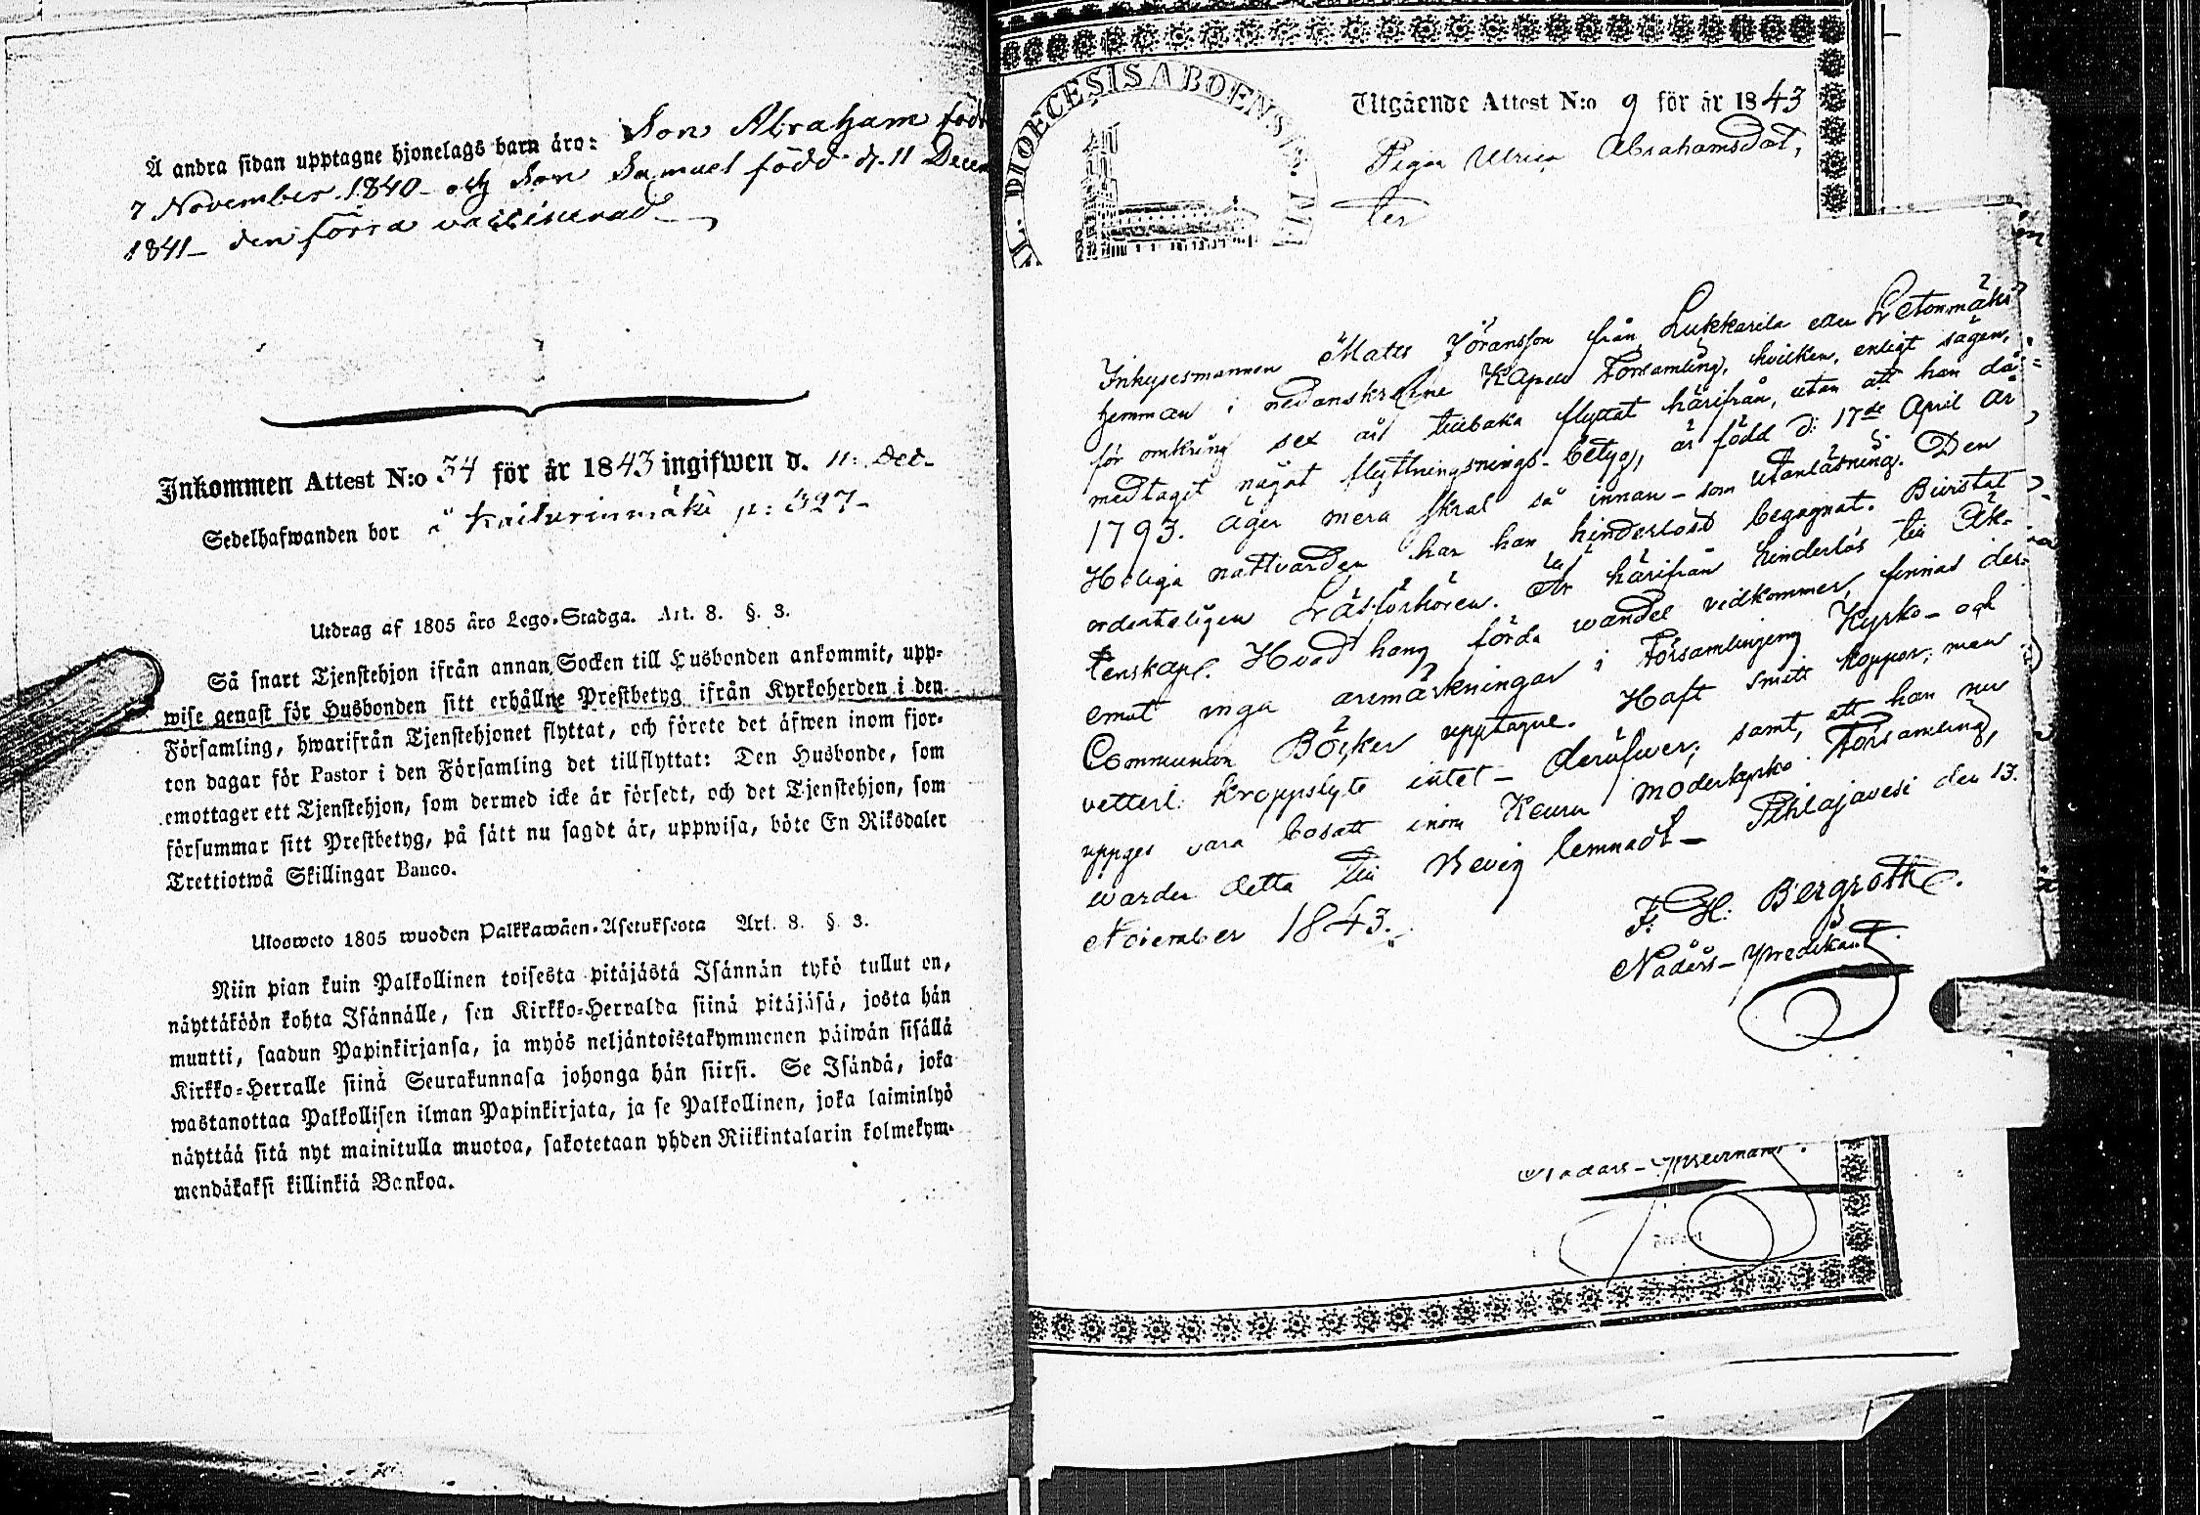 Å andra sidan upptagne hjonelags barn äro: Son Abraham född
7 November 1840 - och Son Samuel född d. 11 Decem
1841 - den förra vaccinerad
Inkommen Attest N:o 34 för år 1843 ingifwen d. 11: Dec.
Sedelhafwanden bor å p: 327-
Utdrag af 1805 års Lego-Stadga. Art. 8. §. 3.
Så snart Tjenstehjon ifrån annan Socken till Husbonden ankommit, upp-
wise genast för Husbonden sitt erhållne Prestbetyg ifrån Kyrkoherden i den
Församling, hwarifrån Tjenstehjonet flyttat, och förete det äfwen inom fjor-
ton dagar för Pastor i den Församling det tillflyttat: Den Husbonde, som
emottager ett Tjenstehjon, som dermed icke är försedt, och det Tjenstehjon, som
försummar sitt Prestbetyg, på sätt nu sagdt är, uppwisa, böte En Riksdaler
Trettiotwå Skillingar Banco.
Ulosweto 1805 wuoden Palkkawäen-Asetuksesta Art. 8. §. 3.
Niin pian kuin Palkollinen toisesta pitäjästä Isännän tykö tullut on,
näyttäköön kohta Isännälle, sen Kirkko-Herralda siinä pitäjäsä, josta hän
muutti, saadun Papinkirjansa, ja myös neljäntoistakymmenen päiwän sisällä
Kirkko-Herralle siinä Seurakunnasa johonga hän siirsi. Se Isändä, joka
wastanottaa Palkollisen ilman Papinkirjata, ja se Palkollinen, joka laiminlyö
näyttää sitä nyt mainitulla muotoa, sakotetaan yhden Riikintalarin kolmekym-
mendäkaksi killinkiä Bankoa.
DIOECESIS ABOENSIS.
Utgående Attest N:o 9 för år 1843
Pigan Ulrica Abrahamsdot,
ter
Inhysesmannen Matts Jöransson från Lukkarila eller Letonmäki
hemman i nedanskrefne Kapell Församling, hvilken, enligt sägen,
för omkring sex år tillbaka flyttat härifrån, utan att han då
medtagit något flyttningsnings-betyg, är född d: 17de April År
1793. Äger mera skral så innan - som utanläsning. Den
Heliga nattvarden har han hinderlöst begagnat. Bivistat
ordenteligen Läsförhören. Är härifrån hinderlös till Äk-
tenskap. Hvad hans förda wandel vidkommer, finnas der-
emot inga anmärkningar i Församlingens Kyrko- och
Communion Böcker upptagne. Haft smitt koppor; men
vetterl. kroppslyte intet - deröfwer; samt, att han nu
uppges vara bosatt inom Keuru moderkyrko Församling,
warder detta till Bevis lemnadt - Pihlajavesi den 13.
November 1843.
F. H. Bergroth.
Nådårs-Predikant.
Nådårs-Predikant.